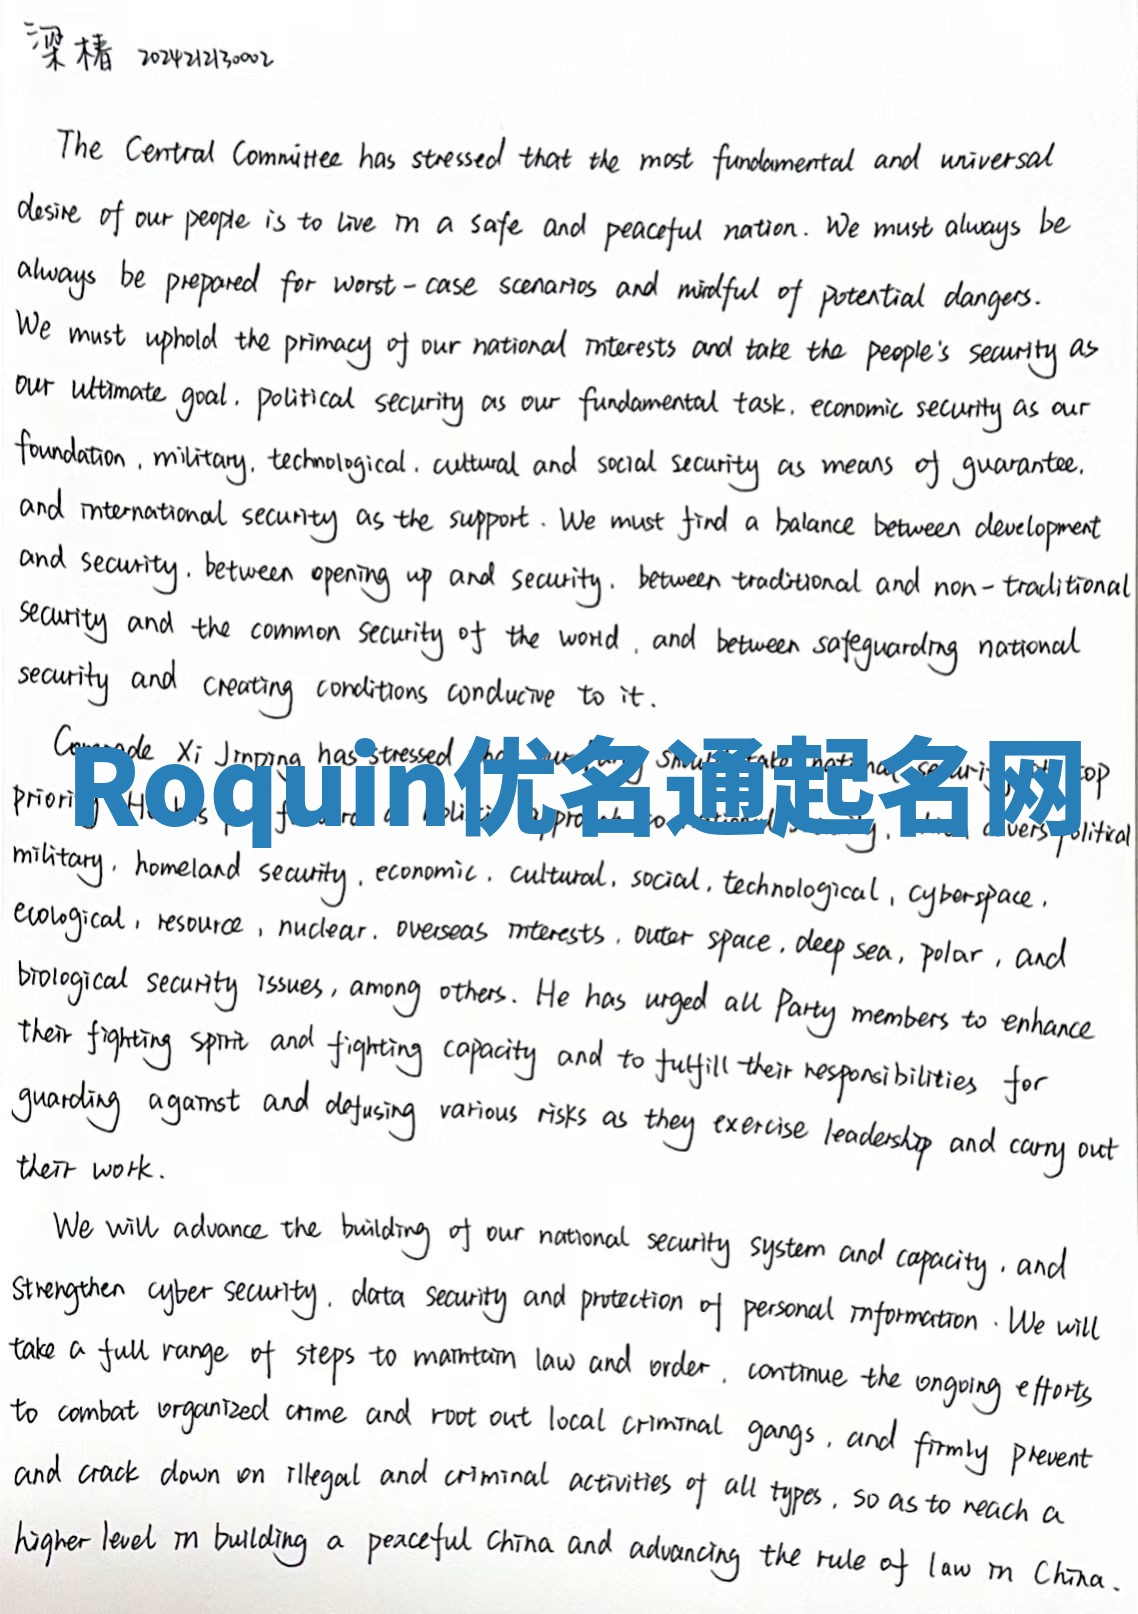 梁椿 2024212130002
The Central Committee has stressed that the most fundamental and universal
desire of our people is to live in a safe and peaceful nation. We must always be
always be prepared for worst-case scenarios and mindful of potential dangers.
We must uphold the primacy of our national interests and take the people's security as
our ultimate goal, political security as our fundamental task, economic security as our
foundation, military, technological, cultural and social security as means of guarantee,
and international security as the support. We must find a balance between development
and security, between opening up and security, between traditional and non-traditional
security and the common security of the world, and between safeguarding national
security and creating conditions conducive to it.
Comrade Xi Jinping has stressed top
Roquin优名通起名网
political
military, homeland security, economic, cultural, social, technological, cyberspace,
ecological, resource, nuclear, overseas interests, outer space, deep sea, polar, and
biological security issues, among others. He has urged all Party members to enhance
their fighting spirit and fighting capacity and to fulfill their responsibilities for
guarding against and defusing various risks as they exercise leadership and carry out
their work.
We will advance the building of our national security system and capacity, and
strengthen cyber security, data security and protection of personal information. We will
take a full range of steps to maintain law and order, continue the ongoing efforts
to combat organized crime and root out local criminal gangs, and firmly prevent
and crack down on illegal and criminal activities of all types, so as to reach a
higher level in building a peaceful China and advancing the rule of law in China.